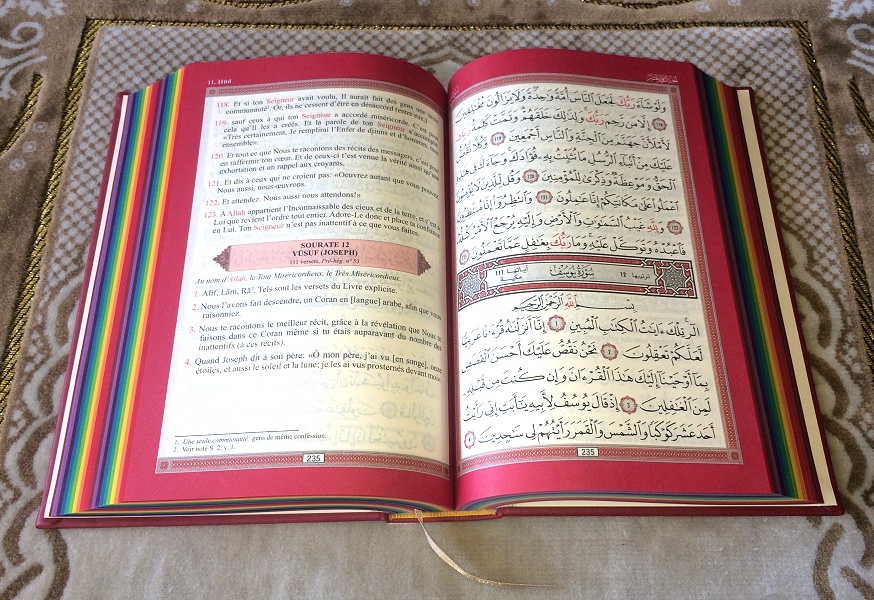 11. Hûd
118. Et si ton Seigneur avait voulu, Il aurait fait des gens une seule
communauté¹. Or, ils ne cessent d'être en désaccord (entre eux),
119. sauf ceux à qui ton Seigneur a accordé miséricorde. C'est pour
cela qu'Il les a créés. Et la parole de ton Seigneur s'accomplit:
«Très certainement, Je remplirai l'Enfer de djinns et d'hommes, tous
ensemble».
120. Et tout ce que Nous te racontons des récits des messagers, c'est pour
en raffermir ton cœur. Et de ceux-ci t'est venue la vérité ainsi qu'une
exhortation et un rappel aux croyants.
121. Et dis à ceux qui ne croient pas: «Ouvrez autant que vous pouvez.
Nous aussi, nous œuvrons.
122. Et attendez. Nous aussi nous attendons!»
123. A Allah appartient l'Inconnaissable des cieux et de la terre, et c'est à
Lui que revient l'ordre tout entier. Adore-Le donc et place ta confiance
en Lui. Ton Seigneur n'est pas inattentif à ce que vous faites.
SOURATE 12
YÛSUF (JOSEPH)
111 versets, Pré-hég. n° 53
Au nom d'Allah, le Tout Miséricordieux, le Très Miséricordieux.
1. Alif, Lâm, Râ². Tels sont les versets du Livre explicite.
2. Nous l'avons fait descendre, un Coran en [langue] arabe, afin que vous
raisonniez.
3. Nous te racontons le meilleur récit, grâce à la révélation que Nous te
faisons dans ce Coran même si tu étais auparavant du nombre des
inattentifs (à ces récits).
4. Quand Joseph dit à son père: «Ô mon père, j'ai vu [en songe], onze
étoiles, et aussi le soleil et la lune; je les ai vus prosternés devant moi».
1. Une seule communauté: gens de même confession.
2. Voir note S. 2, v. 1.
235
وَلَوْ شَآءَ رَبُّكَ لَجَعَلَ ٱلنَّاسَ أُمَّةً وَٰحِدَةً وَلَا يَزَالُونَ مُخْتَلِفِينَ
١١٨ إِلَّا مَن رَّحِمَ رَبُّكَ وَلِذَٰلِكَ خَلَقَهُمْ وَتَمَّتْ كَلِمَةُ رَبِّكَ
لَأَمْلَأَنَّ جَهَنَّمَ مِنَ ٱلْجِنَّةِ وَٱلنَّاسِ أَجْمَعِينَ ١١٩ وَكُلًّا نَّقُصُّ
عَلَيْكَ مِنْ أَنۢبَآءِ ٱلرُّسُلِ مَا نُثَبِّتُ بِهِۦ فُؤَادَكَ وَجَآءَكَ فِى هَٰذِهِ
ٱلْحَقُّ وَمَوْعِظَةٌ وَذِكْرَىٰ لِلْمُؤْمِنِينَ ١٢٠ وَقُل لِّلَّذِينَ لَا يُؤْمِنُونَ
ٱعْمَلُوا۟ عَلَىٰ مَكَانَتِكُمْ إِنَّا عَٰمِلُونَ ١٢١ وَٱنتَظِرُوٓا۟ إِنَّا مُنتَظِرُونَ
١٢٢ وَلِلَّهِ غَيْبُ ٱلسَّمَٰوَٰتِ وَٱلْأَرْضِ وَإِلَيْهِ يُرْجَعُ ٱلْأَمْرُ كُلُّهُۥ
فَٱعْبُدْهُ وَتَوَكَّلْ عَلَيْهِ وَمَا رَبُّكَ بِغَٰفِلٍ عَمَّا تَعْمَلُونَ ١٢٣
ترتيبها 12 سُورَةُ يُوسُفَ آياتها 111
بِسْمِ ٱللَّهِ ٱلرَّحْمَٰنِ ٱلرَّحِيمِ
الٓر تِلْكَ ءَايَٰتُ ٱلْكِتَٰبِ ٱلْمُبِينِ ١ إِنَّآ أَنزَلْنَٰهُ قُرْءَٰنًا عَرَبِيًّا
لَّعَلَّكُمْ تَعْقِلُونَ ٢ نَحْنُ نَقُصُّ عَلَيْكَ أَحْسَنَ ٱلْقَصَصِ
بِمَآ أَوْحَيْنَآ إِلَيْكَ هَٰذَا ٱلْقُرْءَانَ وَإِن كُنتَ مِن قَبْلِهِۦ
لَمِنَ ٱلْغَٰفِلِينَ ٣ إِذْ قَالَ يُوسُفُ لِأَبِيهِ يَٰٓأَبَتِ إِنِّى رَأَيْتُ
أَحَدَ عَشَرَ كَوْكَبًا وَٱلشَّمْسَ وَٱلْقَمَرَ رَأَيْتُهُمْ لِى سَٰجِدِينَ ٤
235